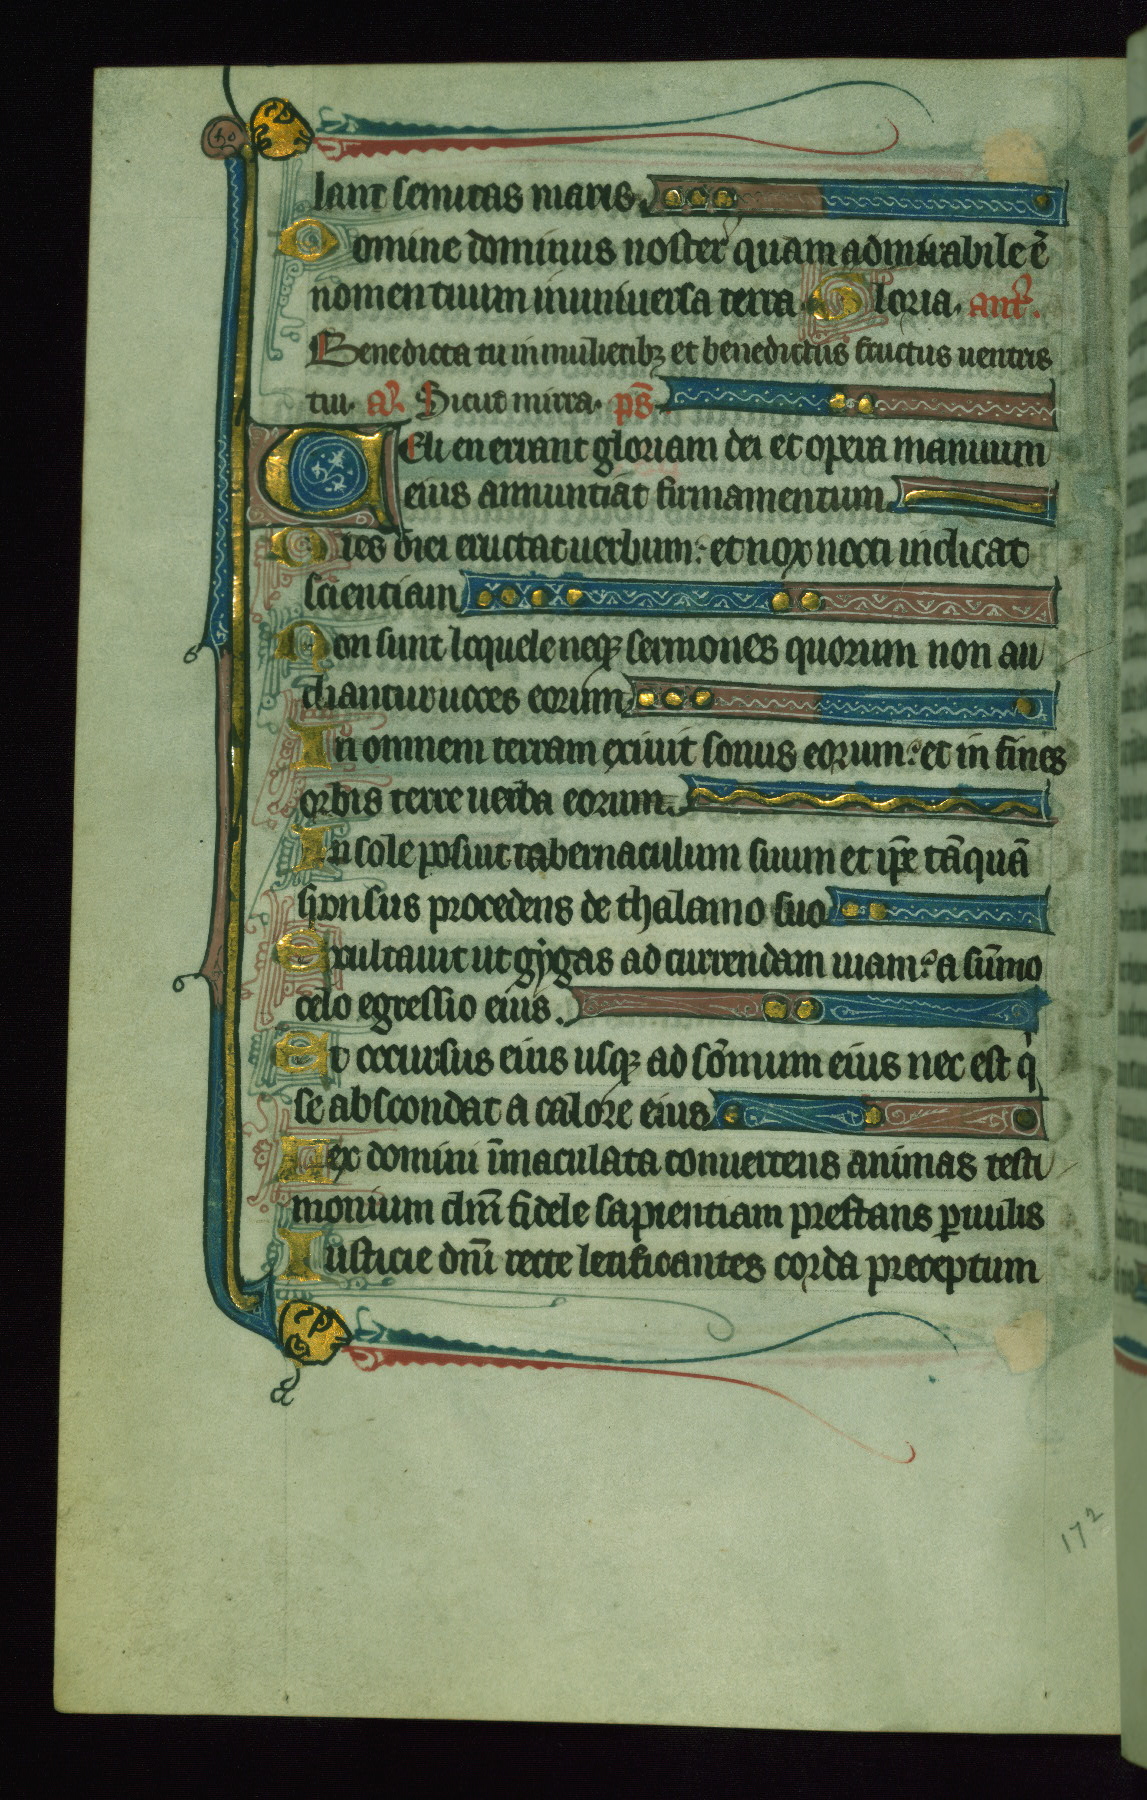 lant semitas maris.
Domine dominus noster quam admirabile ē
nomen tuum in uniuersa terra. Gloria. ant̄.
Benedicta tu in mulieribꝫ et benedictus fructus uentris
tui. a͛. Sicut mirra. ps̄.
Celi enerrant gloriam dei et opera manuum
eius annuntiat firmamentum.
Dies diei eructat uerbum: et nox nocti indicat
scientiam
Non sunt loquele neqꝫ sermones quorum non au
diantur uoces eorum
In omnem terram exiuit sonus eorum: et in fines
orbis terre uerba eorum.
In sole posuit tabernaculum suum et ip̄e tāquā
sponsus procedens de thalamo suo
Exultauit ut gygas ad currendam uiam: a sūmo
celo egressio eius.
Et occursus eius usqꝫ ad sōmum eius nec est q̇
se abscondat a calore eius
Lex domini īmaculata conuertens animas testi
monium dn̄i fidele sapientiam prestans ꝑuulis
Iusticie dn̄i recte letificantes corda preceptum
172